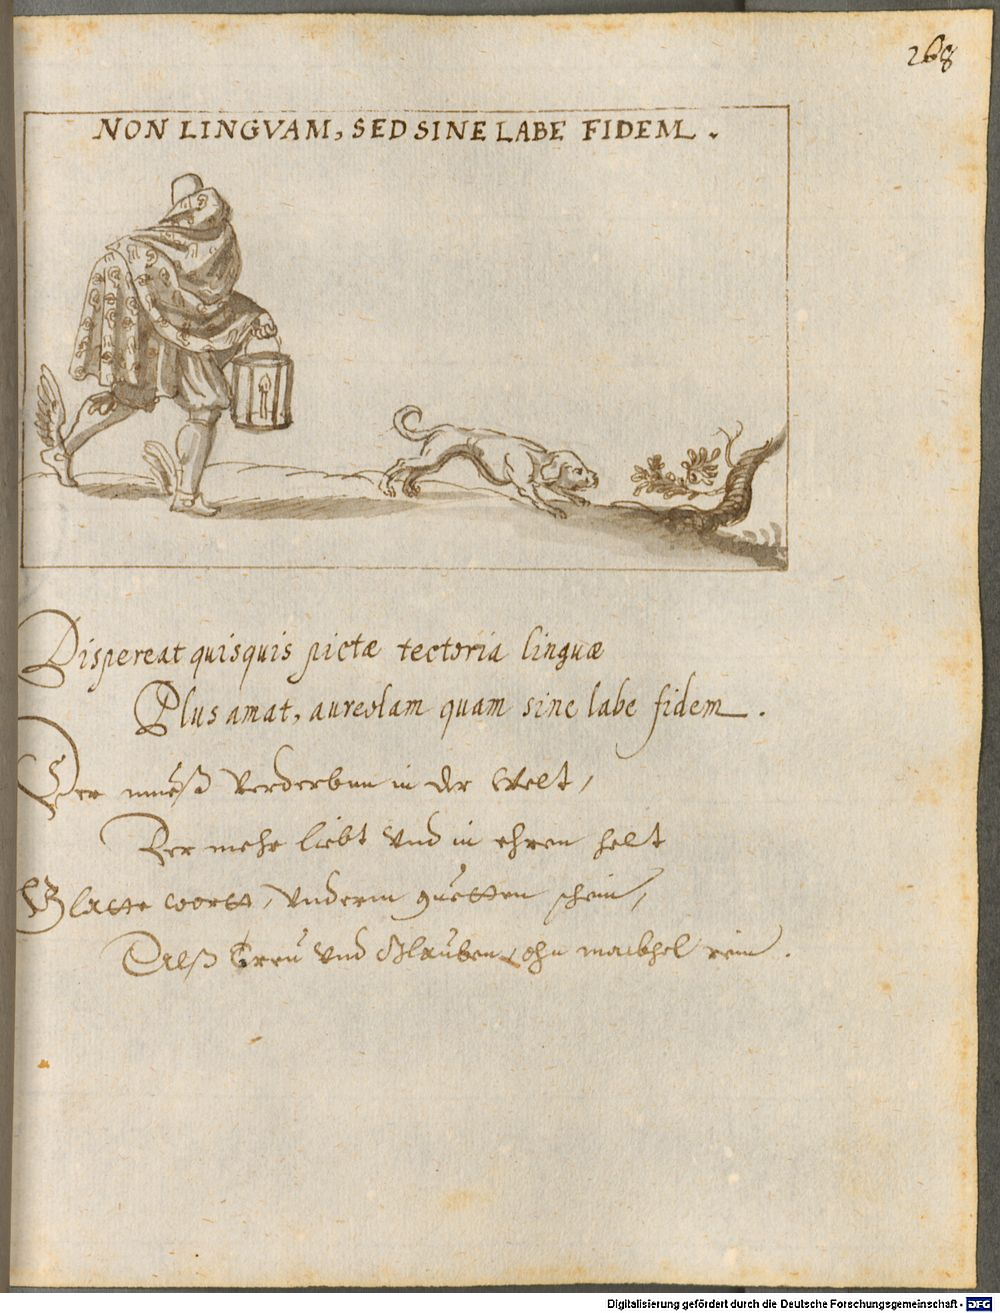 268
NON LINGVAM, SED SINE LABE FIDEM.
Dispereat quisquis pictæ tectoria linguæ
Plus amat, aureolam quam sine labe fidem.
Der mueß verderben in der Welt,
Der mehr liebt vnd in ehren helt
Glatte wortt, vnderm guetten schein,
Alß Treu vnd Glauben, ohn mackhel rein.
Digitalisierung gefördert durch die Deutsche Forschungsgemeinschaft - DFG